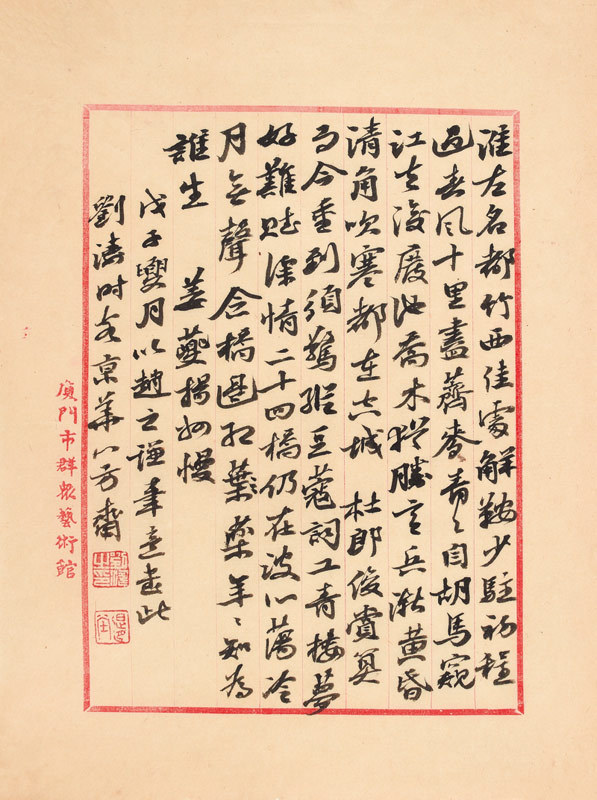 淮左名都竹西佳處解鞍少駐初程
過春風十里盡薺麥青々自胡馬窺
江去後廢池喬木猶厭言兵漸黃昏
清角吹寒都在空城 杜郎俊賞算
而今重到須驚縱豆蔻詞工青樓夢
好難賦深情二十四橋仍在波心蕩冷
月無聲念橋邊紅葉藥年々知為
誰生 姜夔揚州慢
戊子月以趙之謙筆意書此
劉濤時客京華八方齋
廈門市群眾藝術館